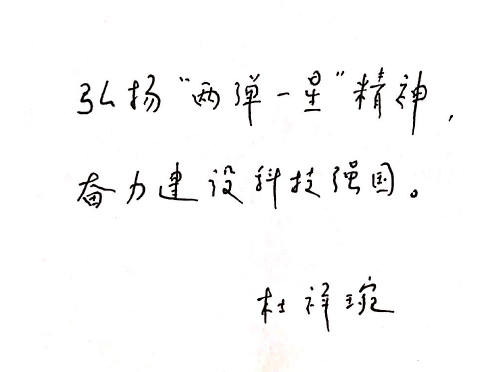 弘扬“两弹一星”精神，
奋力建设科技强国。
杜祥琬